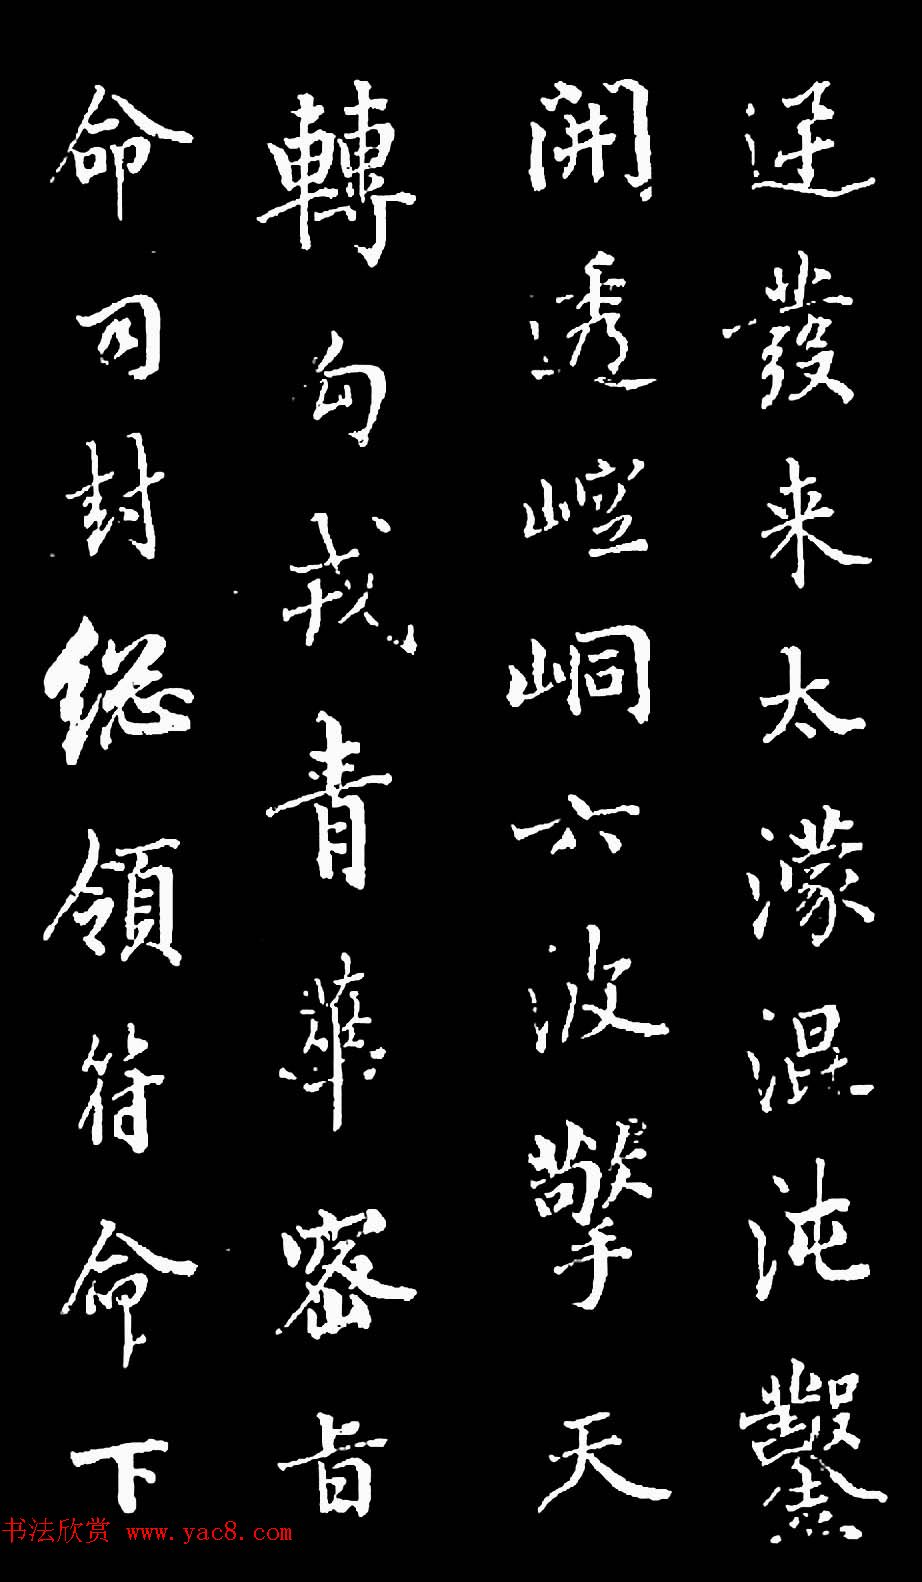 迋發来太濛混沌鑿
開透崆峒六波擎天
轉勾戎青華密旨
命司封總領符命下
书法欣赏 www.yac8.com